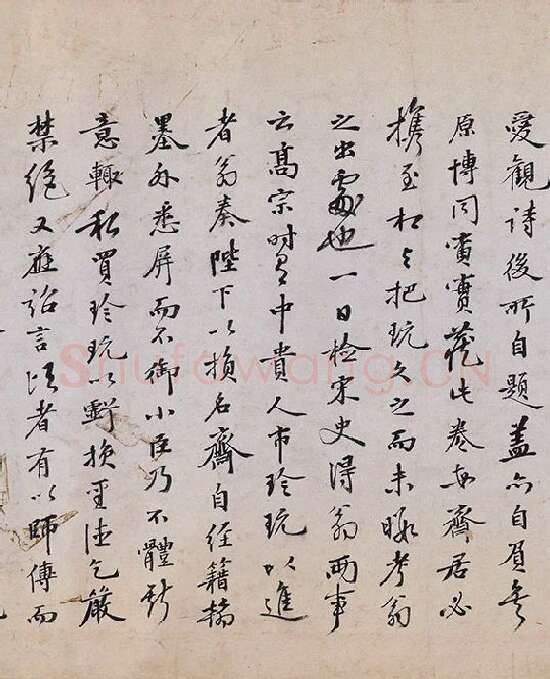 愛觀詩後所自題蓋亦自負矣
原博同寅寶藏此卷每齋居必
攜至相與把玩久之而未暇考翁
之出處也一日檢宋史得翁兩事
云高宗时有中貴人市珍玩以進
者翁奏陛下以損名齋自經籍翰
墨外悉屏而不御小臣乃不體
意輒私買珍玩以虧損聖德乞嚴
禁絕又應詔言頃者有以師傅而
Shufawang.CN